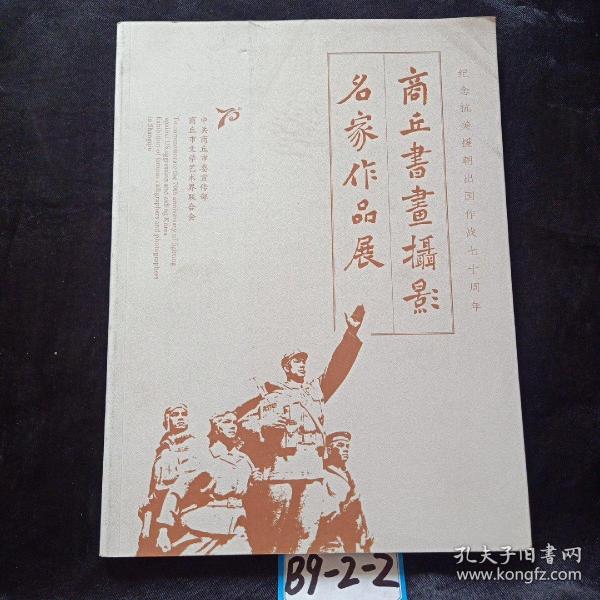 纪念抗美援朝出国作战七十周年
商丘書畫攝影
名家作品展
70
中共商丘市委宣传部
商丘市文学艺术界联合会
To commemorate the 70th anniversary of fighting
against US aggression and aiding Korea
Exhibition of famous calligraphers and photographers
in Shangqiu
B9-2-2
孔夫子旧書网
www.kongfz.com